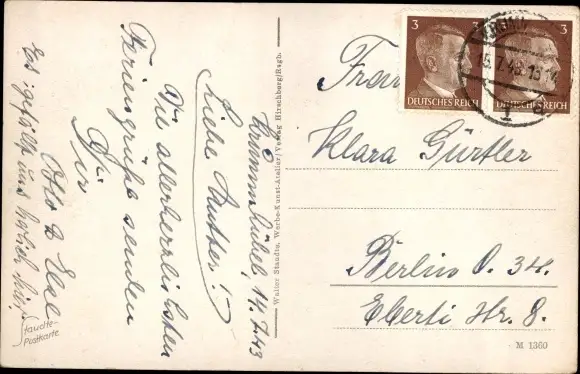 Krummhübel, 14.7.43
Liebe Mutter!
Die allerherzlichsten
Feriengrüße senden
Dir
Otto u. Else
Es gefällt uns herrlich hier.
Walter Staudte, Werbe-Kunst-Atelier / Verlag Hirschberg/Rsgb.
tauchte-
Postkarte
3 3
DEUTSCHES REICH
3
DEUTSCHES REICH
15.7.43.
Frau
Klara Gürtler
Berlin O. 34.
Eberti Str. 8.
M 1360